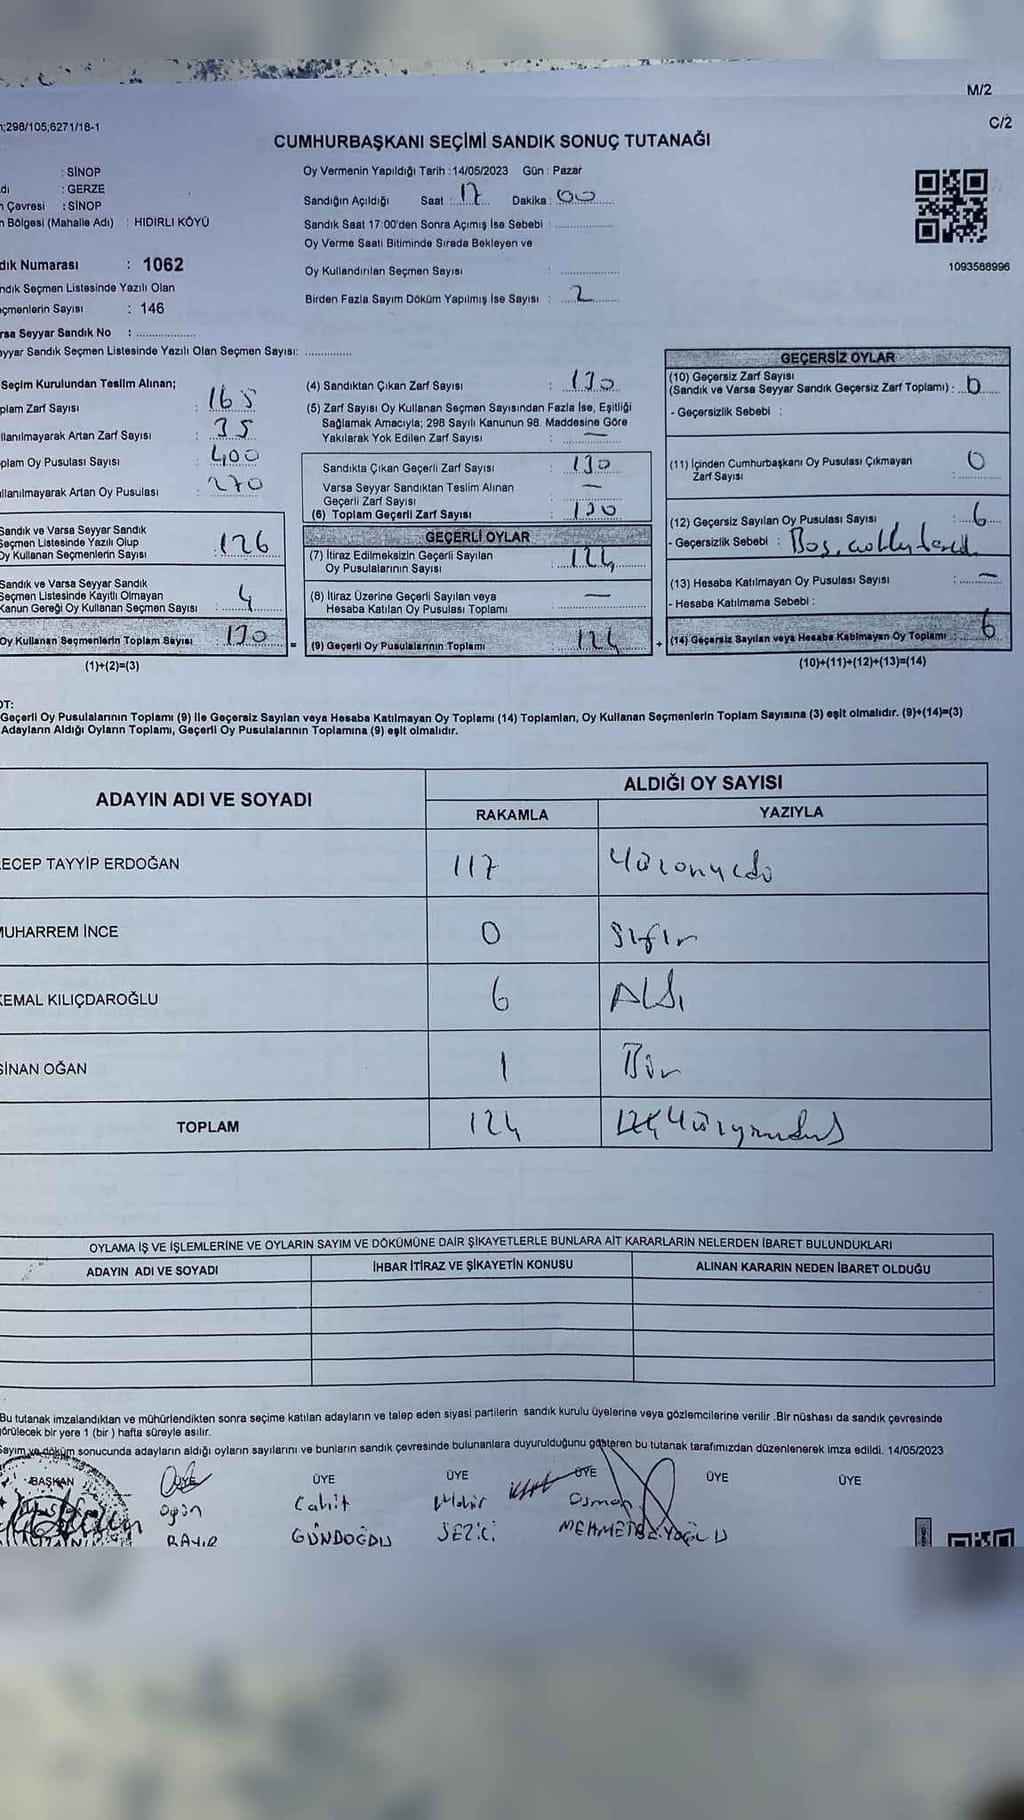 M/2
C/2
:298/105;6271/18-1
CUMHURBAŞKANI SEÇİMİ SANDIK SONUÇ TUTANAĞI
: SİNOP
dı : GERZE
Çevresi : SİNOP
Bölgesi (Mahalle Adı) : HIDIRLI KÖYÜ
dık Numarası : 1062
ndık Seçmen Listesinde Yazılı Olan
çmenlerin Sayısı : 146
rsa Seyyar Sandık No :
yyar Sandık Seçmen Listesinde Yazılı Olan Seçmen Sayısı:
Oy Vermenin Yapıldığı Tarih : 14/05/2023 Gün : Pazar
Sandığın Açıldığı Saat : 17 Dakika : 00
Sandık Saat 17:00'den Sonra Açımış İse Sebebi :
Oy Verme Saati Bitiminde Sırada Bekleyen ve
Oy Kullandırılan Seçmen Sayısı :
Birden Fazla Sayım Döküm Yapılmış İse Sayısı : 2
1093588996
Seçim Kurulundan Teslim Alınan;
plam Zarf Sayısı : 165
llanılmayarak Artan Zarf Sayısı : 35
plam Oy Pusulası Sayısı : 400
ullanılmayarak Artan Oy Pusulası : 270
Sandık ve Varsa Seyyar Sandık
Seçmen Listesinde Yazılı Olup
Oy Kullanan Seçmenlerin Sayısı : 126
Sandık ve Varsa Seyyar Sandık
Seçmen Listesinde Kayıtlı Olmayan
Kanun Gereği Oy Kullanan Seçmen Sayısı : 4
Oy Kullanan Seçmenlerin Toplam Sayısı : 130
(1)+(2)=(3)
(4) Sandıktan Çıkan Zarf Sayısı : 130
(5) Zarf Sayısı Oy Kullanan Seçmen Sayısından Fazla İse, Eşitliği
Sağlamak Amacıyla; 298 Sayılı Kanunun 98. Maddesine Göre
Yakılarak Yok Edilen Zarf Sayısı : —
Sandıkta Çıkan Geçerli Zarf Sayısı : 130
Varsa Seyyar Sandıktan Teslim Alınan
Geçerli Zarf Sayısı : —
(6) Toplam Geçerli Zarf Sayısı : 130
GEÇERLİ OYLAR
(7) İtiraz Edilmeksizin Geçerli Sayılan
Oy Pusulalarının Sayısı : 124
(8) İtiraz Üzerine Geçerli Sayılan veya
Hesaba Katılan Oy Pusulası Toplamı : —
= (9) Geçerli Oy Pusulalarının Toplamı : 124 +
GEÇERSİZ OYLAR
(10) Geçersiz Zarf Sayısı
(Sandık ve Varsa Seyyar Sandık Geçersiz Zarf Toplamı) :
- Geçersizlik Sebebi :
(11) İçinden Cumhurbaşkanı Oy Pusulası Çıkmayan
Zarf Sayısı : 0
(12) Geçersiz Sayılan Oy Pusulası Sayısı : 6
- Geçersizlik Sebebi : Boş,
(13) Hesaba Katılmayan Oy Pusulası Sayısı : —
- Hesaba Katılmama Sebebi :
(14) Geçersiz Sayılan veya Hesaba Katılmayan Oy Toplamı : 6
(10)+(11)+(12)+(13)=(14)
OT:
Geçerli Oy Pusulalarının Toplamı (9) İle Geçersiz Sayılan veya Hesaba Katılmayan Oy Toplamı (14) Toplamları, Oy Kullanan Seçmenlerin Toplam Sayısına (3) eşit olmalıdır. (9)+(14)=(3)
Adayların Aldığı Oyların Toplamı, Geçerli Oy Pusulalarının Toplamına (9) eşit olmalıdır.
ADAYIN ADI VE SOYADI ALDIĞI OY SAYISI
RAKAMLA YAZIYLA
ECEP TAYYİP ERDOĞAN 117 Yüzonyedi
MUHARREM İNCE 0 Sıfır
KEMAL KILIÇDAROĞLU 6 Altı
SİNAN OĞAN 1 Bir
TOPLAM 124
OYLAMA İŞ VE İŞLEMLERİNE VE OYLARIN SAYIM VE DÖKÜMÜNE DAİR ŞİKAYETLERLE BUNLARA AİT KARARLARIN NELERDEN İBARET BULUNDUKLARI
ADAYIN ADI VE SOYADI İHBAR İTİRAZ VE ŞİKAYETİN KONUSU ALINAN KARARIN NEDEN İBARET OLDUĞU
Bu tutanak imzalandıktan ve mühürlendikten sonra seçime katılan adayların ve talep eden siyasi partilerin sandık kurulu üyelerine veya gözlemcilerine verilir .Bir nüshası da sandık çevresinde
görülecek bir yere 1 (bir ) hafta süreyle asılır.
Sayım ve döküm sonucunda adayların aldığı oyların sayılarını ve bunların sandık çevresinde bulunanlara duyurulduğunu gösteren bu tutanak tarafımızdan düzenlenerek imza edildi. 14/05/2023
BAŞKAN ÜYE ÜYE ÜYE ÜYE ÜYE ÜYE
Cahit Osman
GÜNDOĞDU SEZİCİ